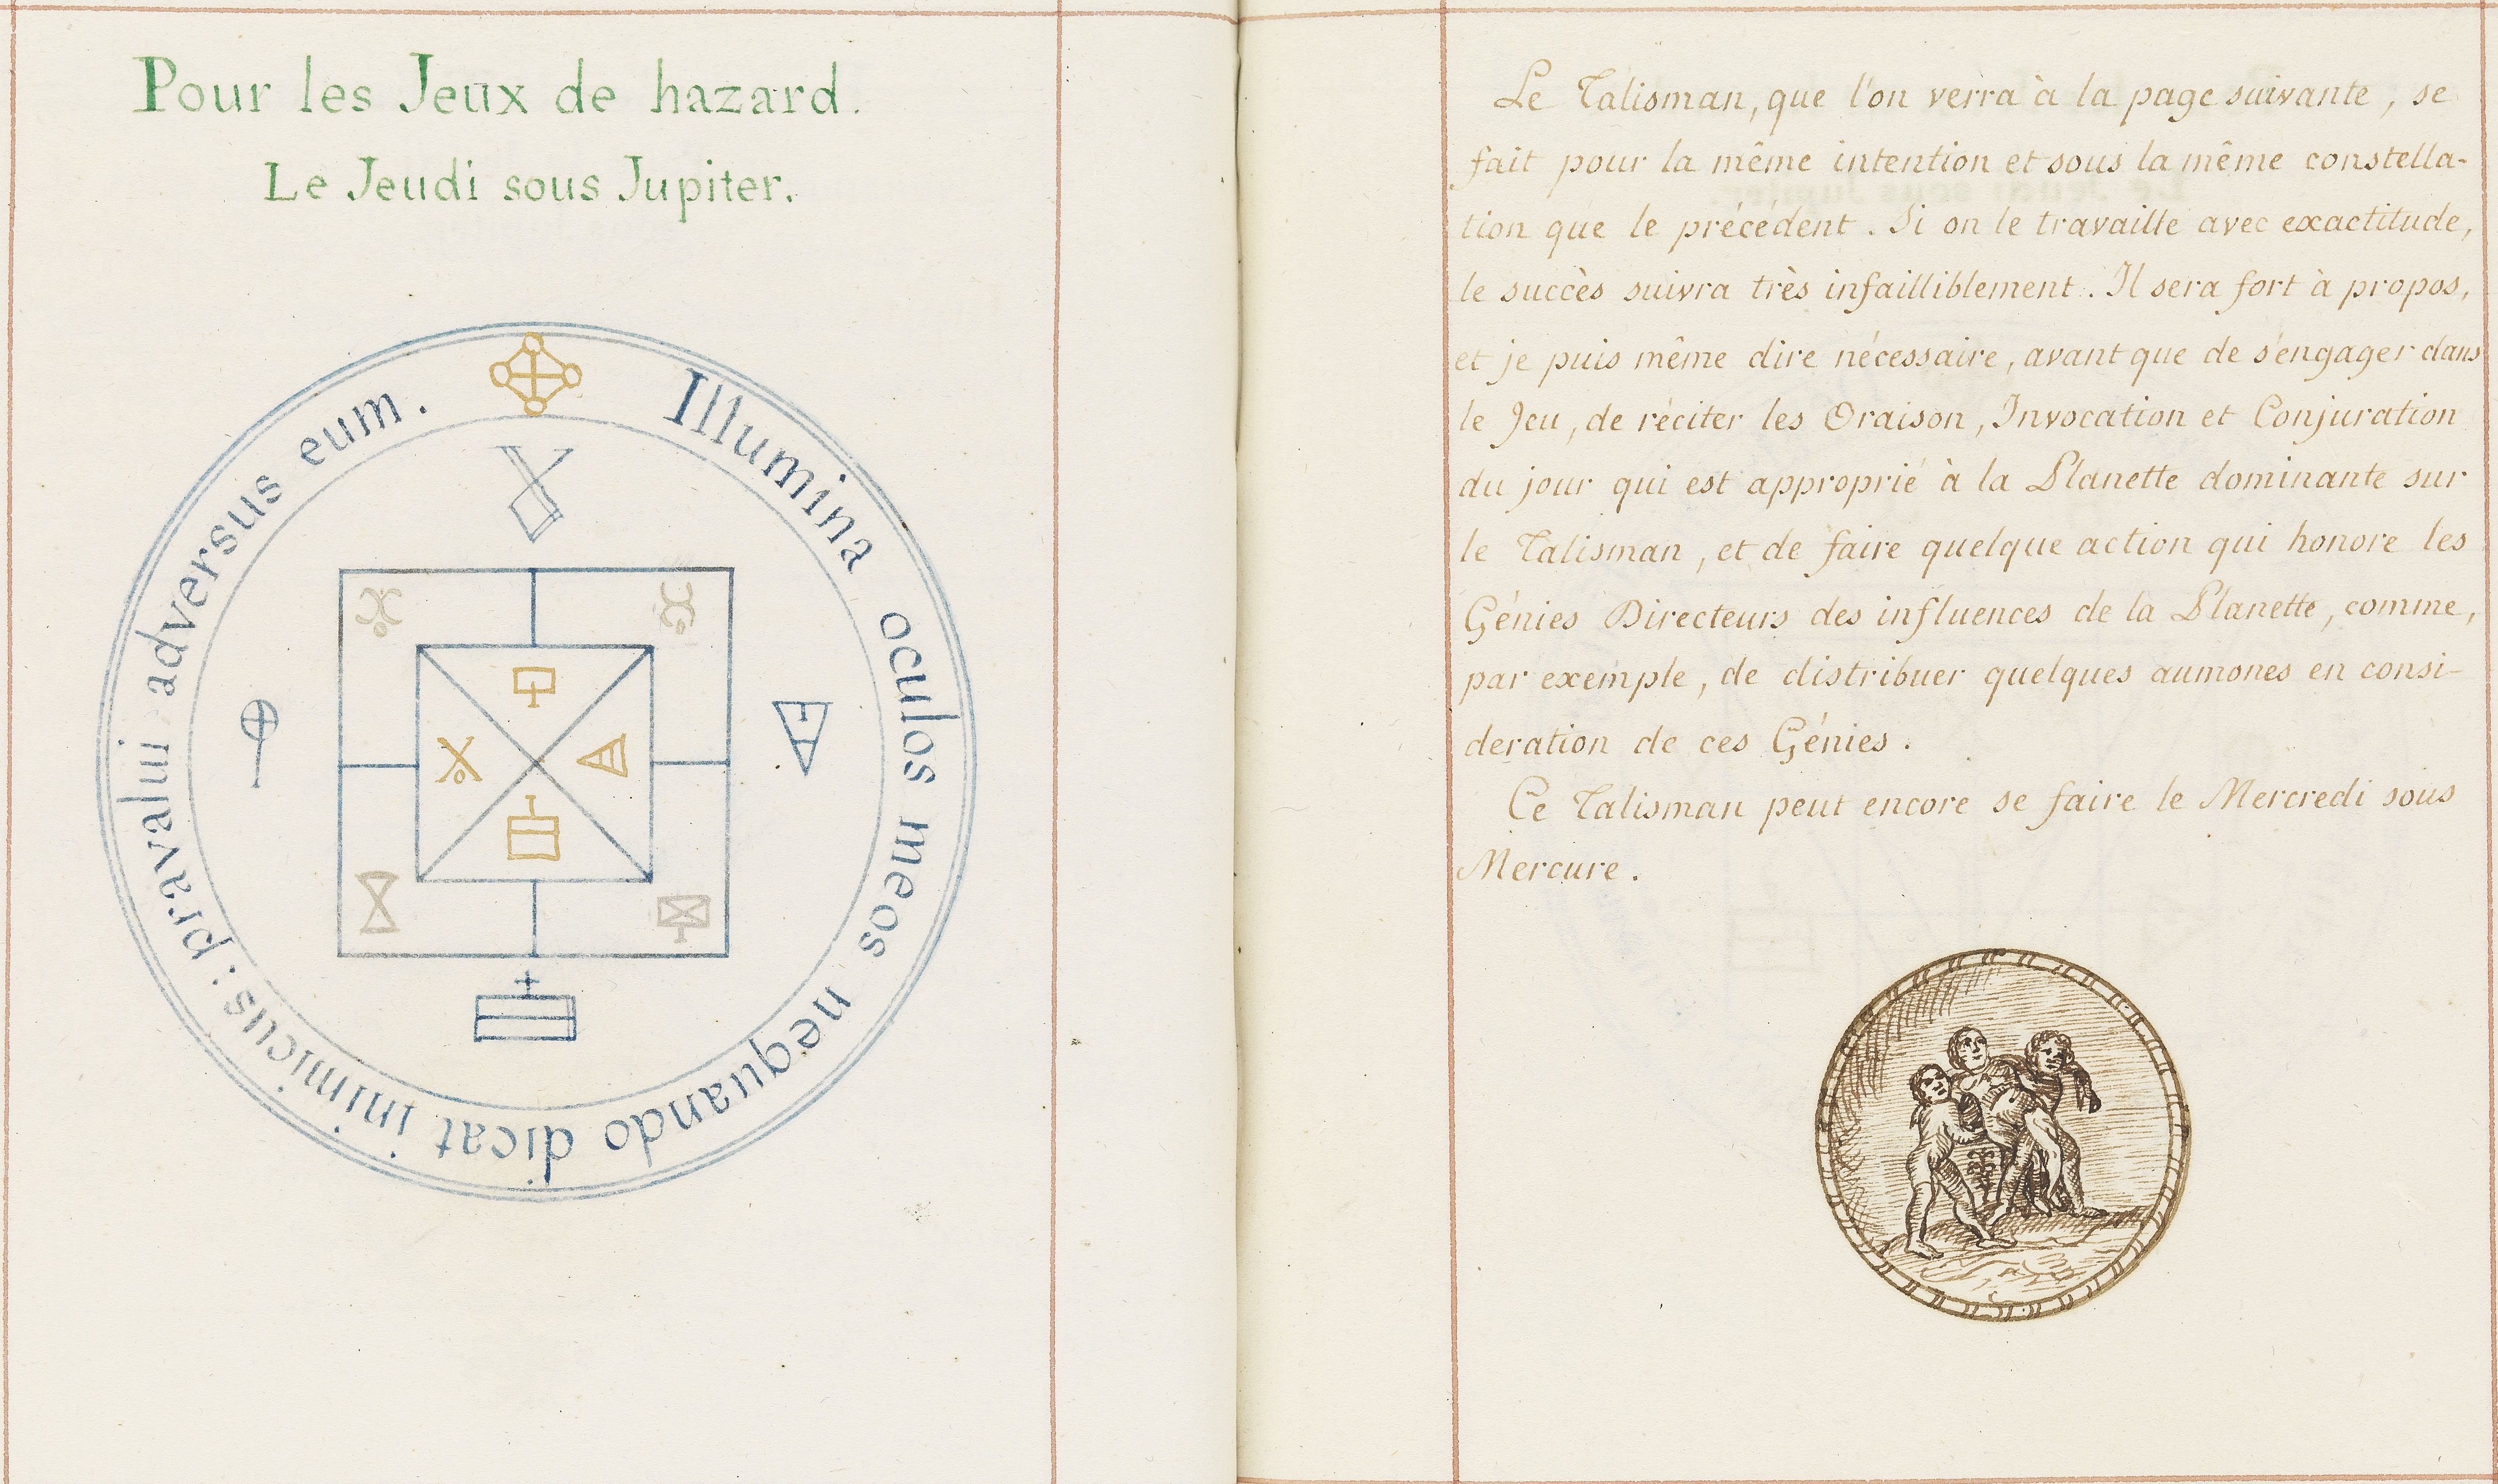 Pour les Jeux de hazard.
Le Jeudi sous Jupiter.
Illumina oculos meos nequando dicat inimicus: pravalui adversus eum.
Le Talisman, que l'on verra à la page suivante, se
fait pour la même intention et sous la même constella-
tion que le précédent. Si on le travaille avec exactitude,
le succès suivra très infailliblement. Il sera fort à propos,
et je puis même dire nécessaire, avant que de s'engager dans
le Jeu, de réciter les Oraison, Invocation et Conjuration
du jour qui est approprié à la Planette dominante sur
le Talisman, et de faire quelque action qui honore les
Génies Directeurs des influences de la Planette, comme,
par exemple, de distribuer quelques aumones en consi-
deration de ces Génies.
Ce Talisman peut encore se faire le Mercredi sous
Mercure.